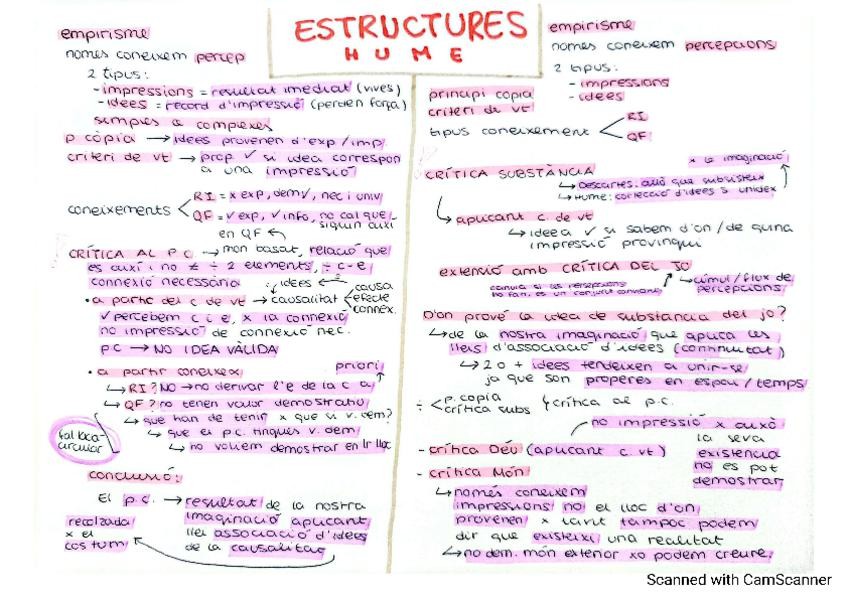 ESTRUCTURES
HUME
empirisme
només coneixem percep
2 tipus:
- impressions = resultat imediat (vives)
- idees = record d'impressió (perden força)
simples a complexes
p còpia → idees provenen d'exp/imp
criteri de vt → prop ✓ si idea correspon
a una impressió
coneixements < RI = x exp, demv, nec i univ
QF = ✓ exp, ✓ info, no cal que
siguin així
en QF
CRÍTICA AL PC → mon basat, relació que
és així i no ≠ ÷ 2 elements, ÷ c-e
connexió necessària
idees
· a partir del c de vt → causalitat < causa
efecte
connex.
✓ percebem c i e, x la connexió
no impressió de connexió nec.
pc → NO IDEA VÀLIDA
· a partir coneixex
priori
↳ RI? NO → no derivar l'e de la c a
↳ QF? no tenen valor demostratiu
↳ que han de tenir x que si v. dem?
↳ que el p.c. tingues v. dem
↳ no voliem demostrar en 1r lloc
fal·làcia
circular
conclusió:
El p.c. → resultat de la nostra
imaginació aplicant
llei associació d'idees
de la causalitat
recolzada
x el
costum
empirisme
només coneixem percepcions
2 tipus:
- impressions
- idees
principi còpia
criteri de vt
tipus coneixement < RI
QF
x la imaginació
CRÍTICA SUBSTÀNCIA
↳ Descartes: allò que subsisteix
↳ Hume: col·lecció d'idees s'unidex
↳ aplicant c. de vt
↳ idea ✓ si sabem d'on / de quina
impressió provingui
extensió amb CRÍTICA DEL JO
↳ cúmul / flux de
percepcions
canvia si les percepcions
no fan, és un conjunt canviant
D'on prové la idea de substància del jo?
↳ de la nostra imaginació que aplica les
lleis d'associació d'idees (continuïtat)
↳ 2 o + idees tendeixen a unir-se
ja que son properes en espai/temps
÷ < p. còpia
crítica subs
crítica al p.c.
no impressió x això
la seva
existència
no es pot
demostrar
- crítica Déu (aplicant c. vt)
- crítica Món
↳ només coneixem
impressions no el lloc d'on
provenen x tant tampoc podem
dir que existeixi una realitat
↳ no dem. món exterior xo podem creure
Scanned with CamScanner